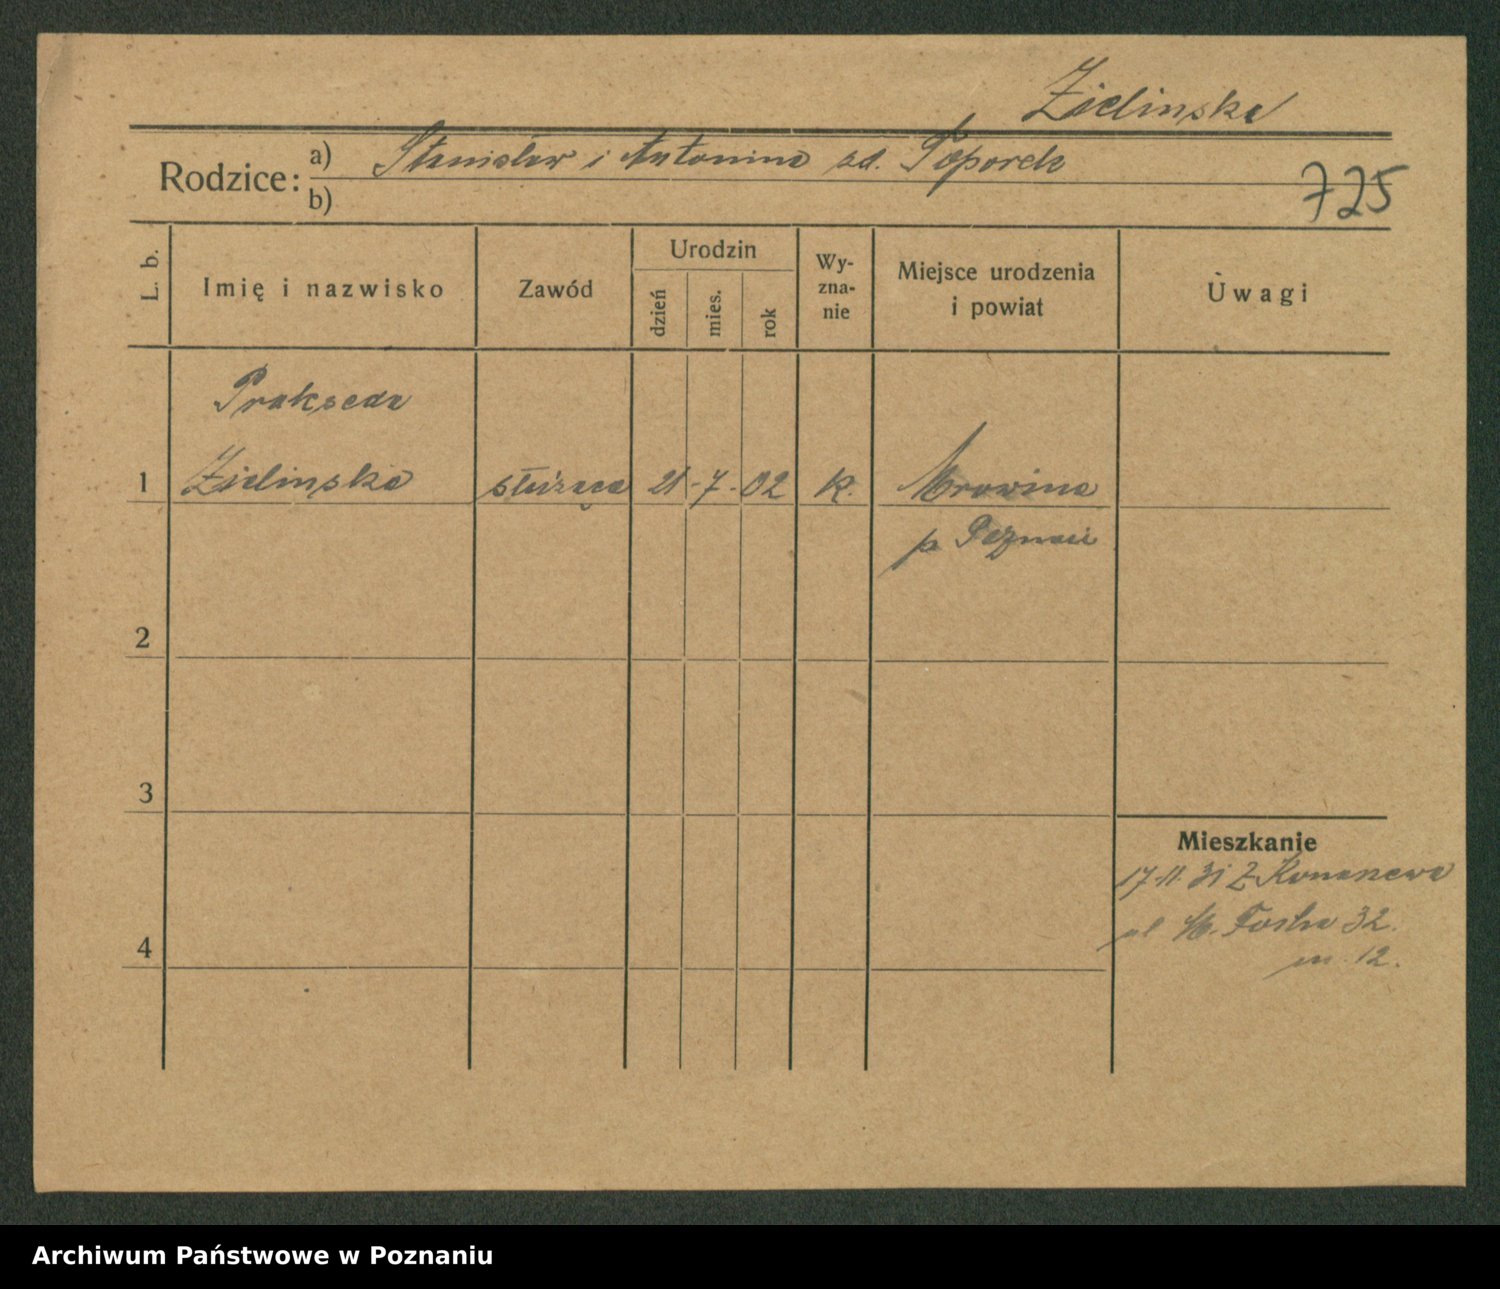 Zielinska
Rodzice: a) Stanisław i Antonina zd. Toporek
b)
725
L. b.
Imię i nazwisko
Zawód
Urodzin
dzień
mies.
rok
Wy-
zna-
nie
Miejsce urodzenia
i powiat
Uwagi
Prakseda
1 Zielinska służąca 21 - 7 - 02 k. Mrowino
p Poznań
2
3
Mieszkanie
17.11.31 Z
ul M. Focha 32.
4
m. 12.
Archiwum Państwowe w Poznaniu